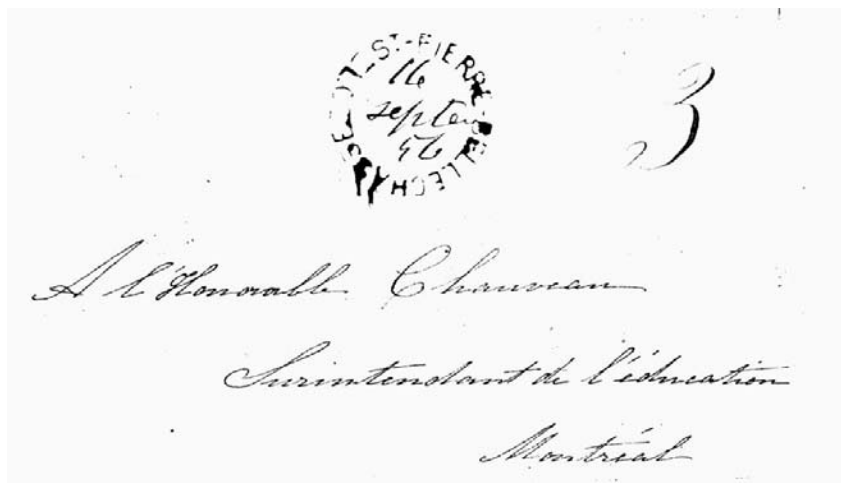 ST-PIERRE BELLECHASSE
16
septem
56
3
A l'Honorable Chauveau
Surintendant de l'éducation
Montréal